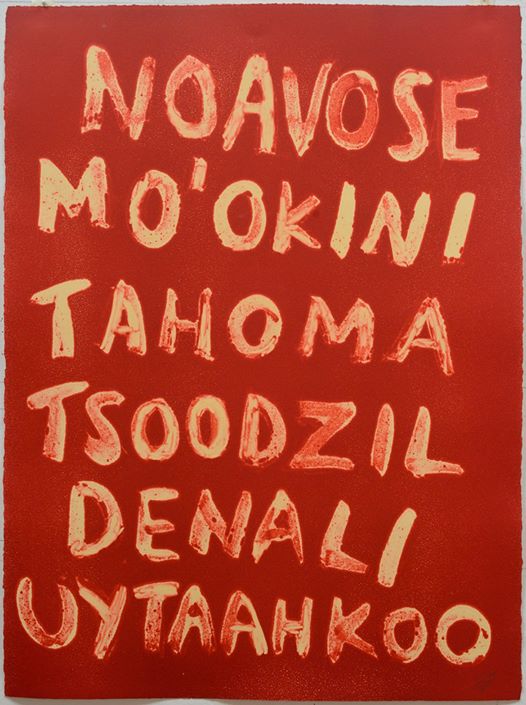 NOAVOSE
MO'OKINI
TAHOMA
TSOODZIL
DENALI
UYTAAHKOO